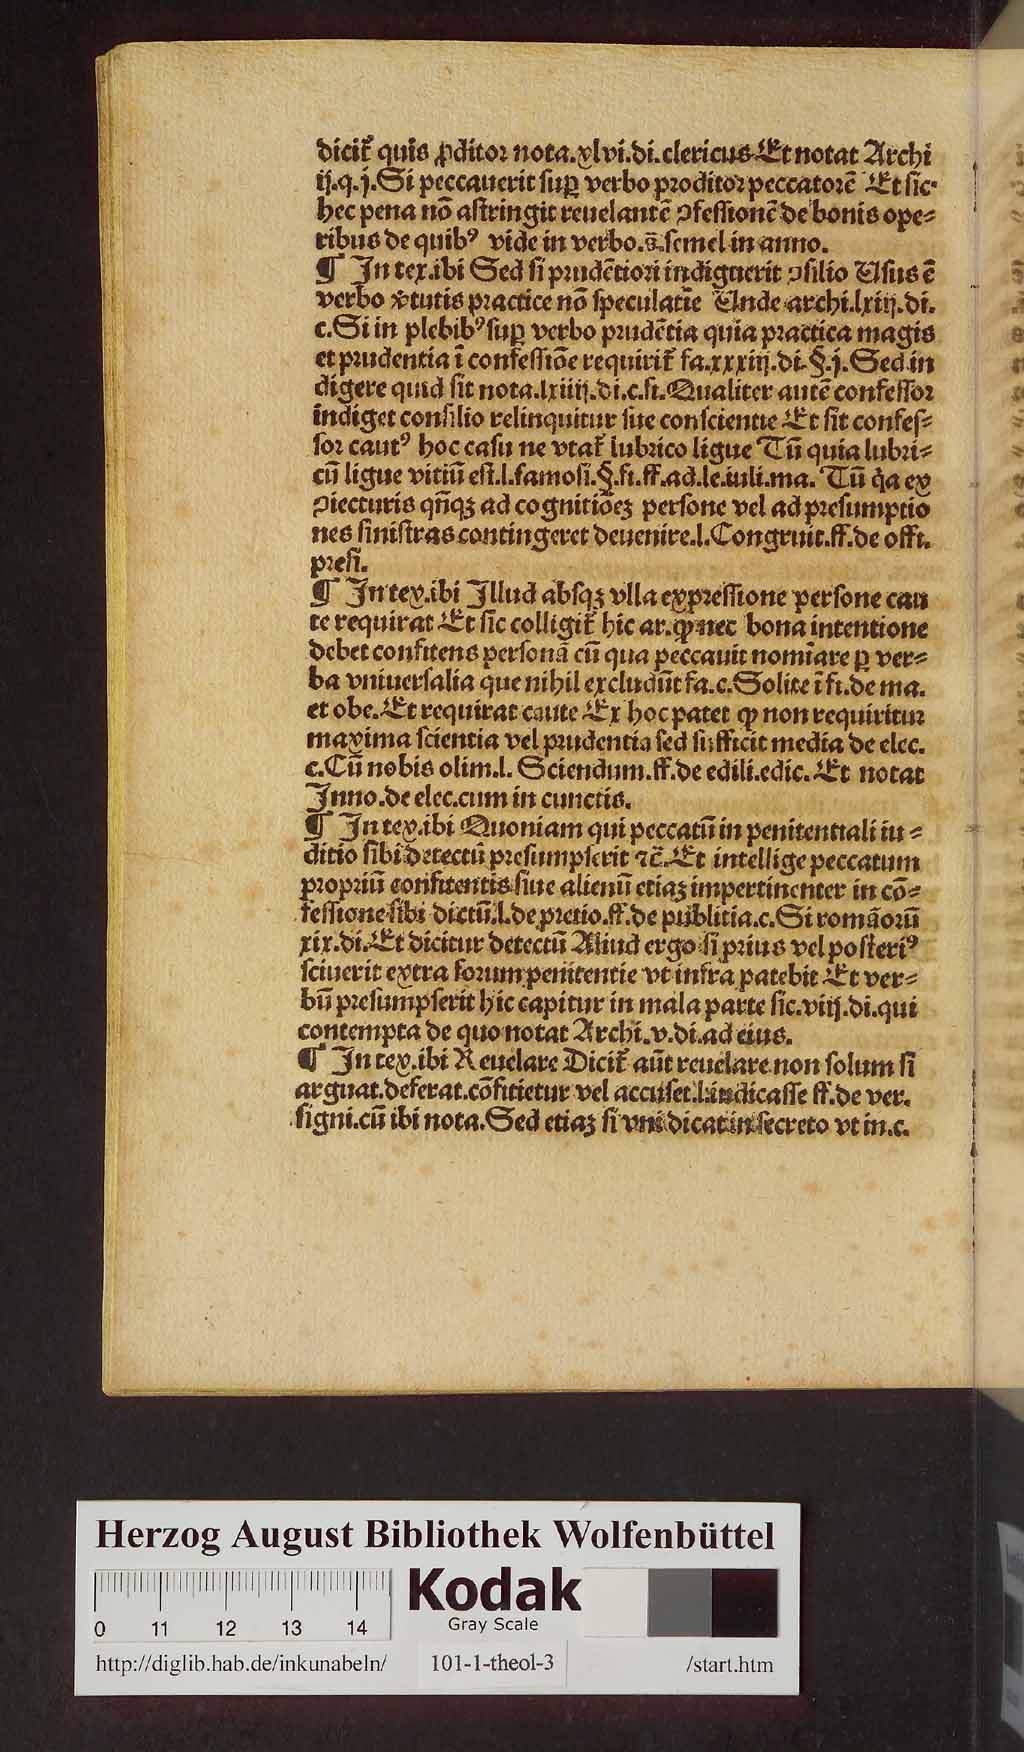 dicit̃ quis ꝓditor nota.xlvi.di.clericus Et notat Archi
ij.q.j.Si peccauerit suꝑ verbo proditor peccatorē Et sic
hec pena nō astringit reuelantē ꝯfessionē de bonis ope⸗
ribus de quibꝰ vide in verbo.s̄.semel in anno.
¶ In tex.ibi Sed si prudētiori indiguerit ꝯsilio Usus ē
verbo v̉tutis practice nō speculatie Unde archi.lxiij.di.
c.Si in plebibꝰ suꝑ verbo prudētia quia practica magis
et prudentia ī confessiōe requirit̃ fa.xxxiij.di.§.j.Sed in
digere quid sit nota.lxiiij.di.c.si.Qualiter autē confessor
indiget consilio relinquitur sue conscientie Et sit confes⸗
sor cautꝰ hoc casu ne vtat̃ lubrico ligue Tū quia lubri⸗
cū ligue vitiū est.l.famosi.§.fi.ff.ad.le.iuli.ma. Tū q̇a ex
ꝯiecturis qñqꝫ ad cognitiōeꝫ persone vel ad presumptio
nes sinistras contingeret deuenire.l.Congruit.ff.de offi.
presi.
¶ In tex.ibi Illud absqꝫ vlla expressione persone cau
te requirat Et sic colligit̃ hic ar.ꝙ nec bona intentione
debet confitens personā cū qua peccauit nomīare ꝑ ver⸗
ba vniuersalia que nihil excludūt fa.c.Solite ī fi.de ma.
et obe.Et requirat caute Ex hoc patet ꝙ non requiritur
maxima scientia vel prudentia sed sufficit media de elec.
c.Cū nobis olim.l. Sciendum.ff.de edili.edic. Et notat
Inno.de elec.cum in cunctis.
¶ In tex.ibi Quoniam qui peccatū in penitentiali iu⸗
ditio sibi detectū presumpserit ⁊c̄.Et intellige peccatum
propriū confitentis siue alienū etiaꝫ impertinenter in cō⸗
fessione sibi dictū.l.de pretio.ff.de publitia.c.Si romāorū
xix.di.Et dicitur detectū Aliud ergo si prius vel posteriꝰ
sciuerit extra forum penitentie vt infra patebit Et ver⸗
bū presumpserit hic capitur in mala parte sic.viij.di.qui
contempta de quo notat Archi.v.di.ad eius.
¶ In tex.ibi Reuelare Dicit̃ aūt reuelare non solum si
arguat.deferat.cōfitietur vel accuset.l.indicasse ff.de ver.
signi.cū ibi nota.Sed etiaꝫ si vni dicat in secreto vt in.c.
Herzog August Bibliothek Wolfenbüttel
Kodak
Gray Scale
0 11 12 13 14
http://diglib.hab.de/inkunabeln/ 101-1-theol-3 /start.htm